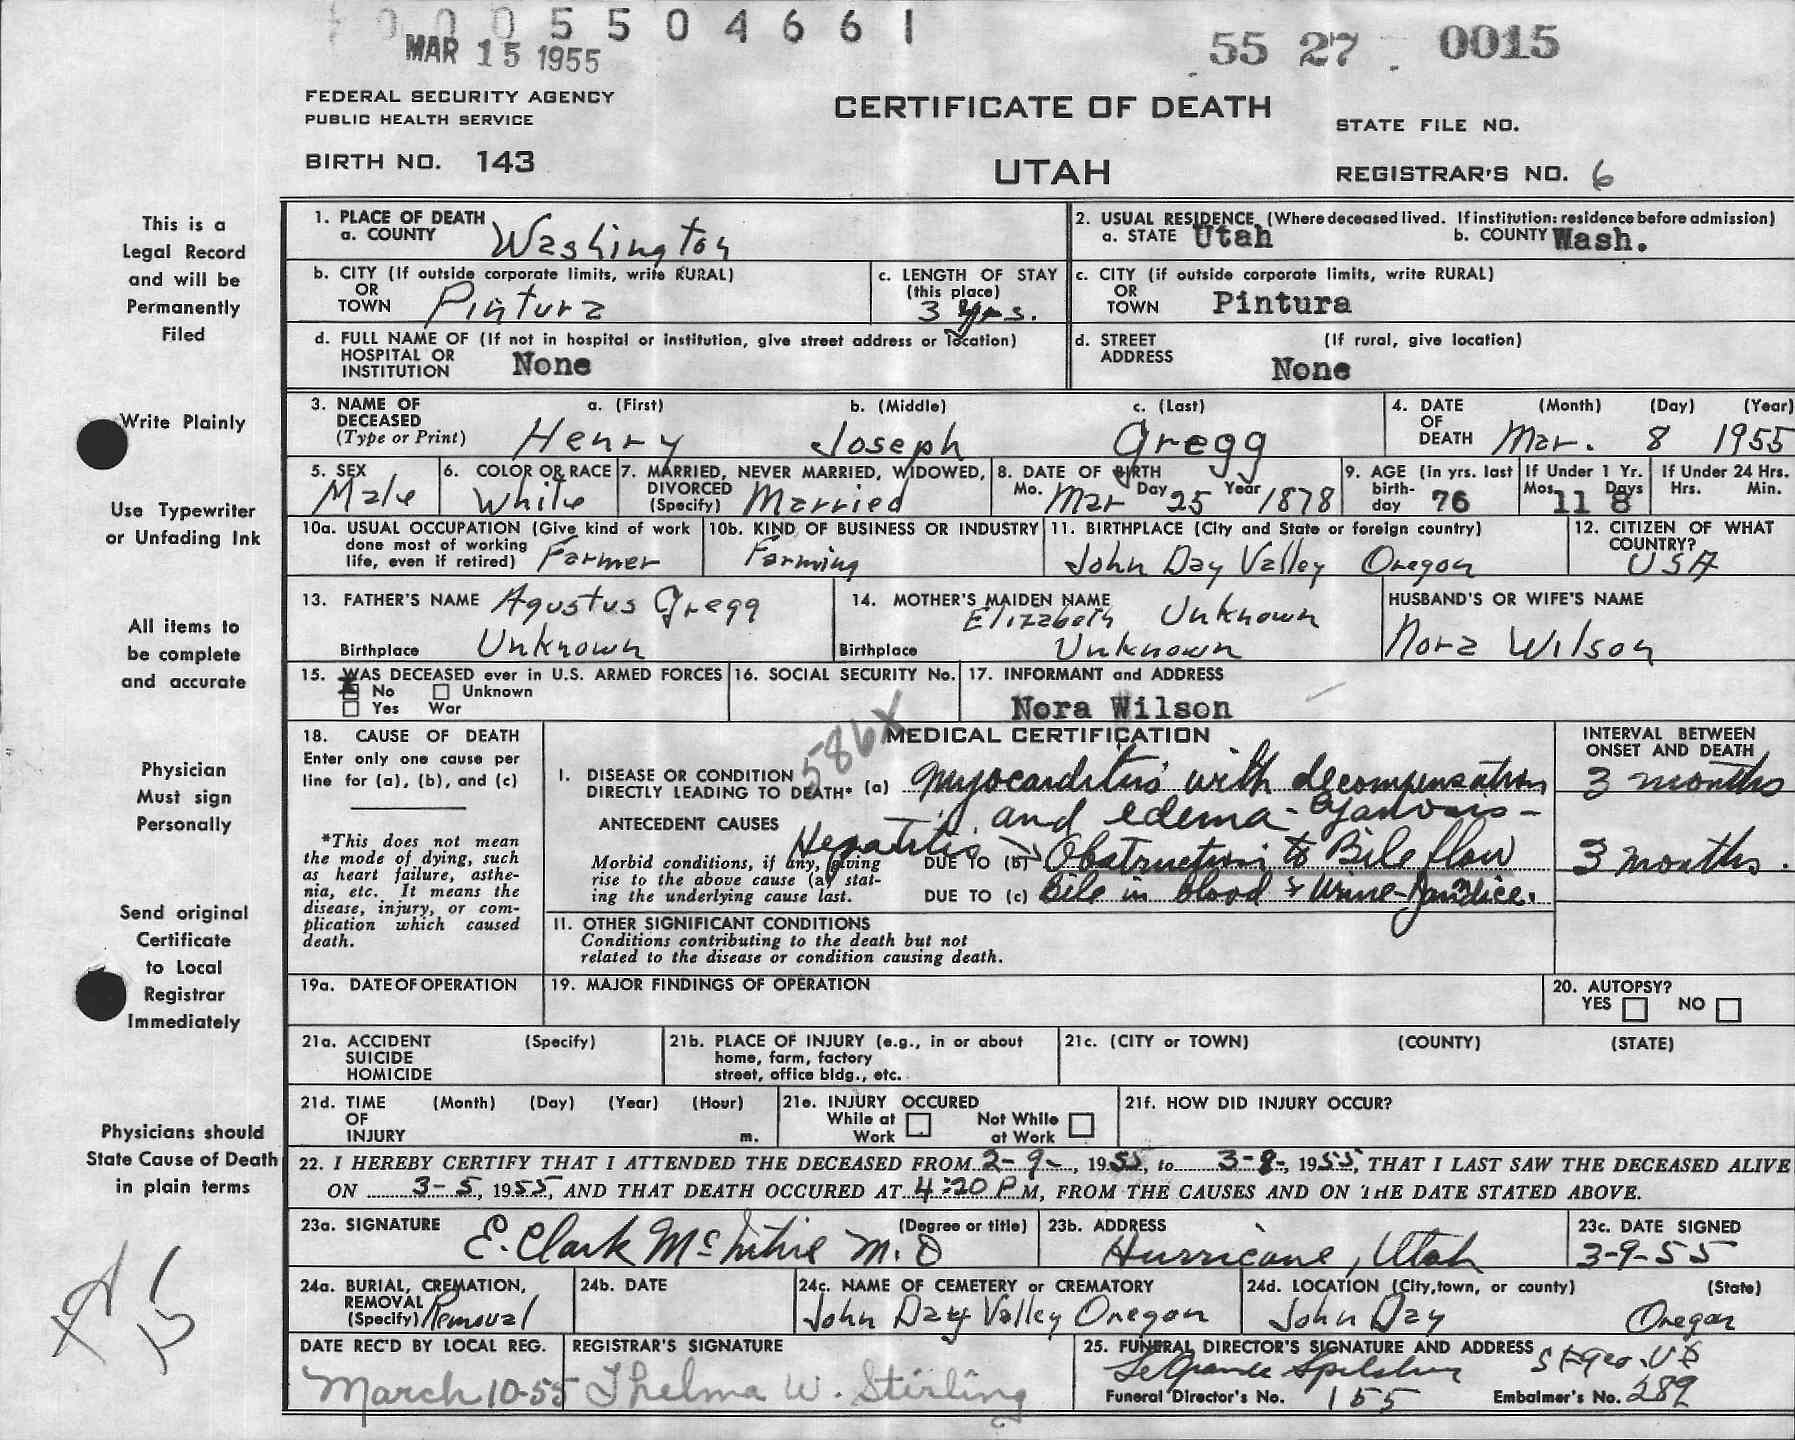 0005504661
MAR 15 1955
55 27 0015
FEDERAL SECURITY AGENCY
PUBLIC HEALTH SERVICE
CERTIFICATE OF DEATH
STATE FILE NO.
BIRTH NO. 143
UTAH
REGISTRAR'S NO. 6
This is a
Legal Record
and will be
Permanently
Filed
Write Plainly
Use Typewriter
or Unfading Ink
All items to
be complete
and accurate
Physician
Must sign
Personally
Send original
Certificate
to Local
Registrar
Immediately
Physicians should
State Cause of Death
in plain terms
1. PLACE OF DEATH
a. COUNTY Washington
2. USUAL RESIDENCE (Where deceased lived. If institution: residence before admission)
a. STATE Utah b. COUNTY Wash.
b. CITY (If outside corporate limits, write RURAL)
OR
TOWN Pintura
c. LENGTH OF STAY
(this place)
3 yrs.
c. CITY (if outside corporate limits, write RURAL)
OR
TOWN Pintura
d. FULL NAME OF (If not in hospital or institution, give street address or location)
HOSPITAL OR
INSTITUTION None
d. STREET (If rural, give location)
ADDRESS None
3. NAME OF a. (First) b. (Middle) c. (Last)
DECEASED
(Type or Print) Henry Joseph Gregg
4. DATE (Month) (Day) (Year)
OF
DEATH Mar. 8 1955
5. SEX
Male
6. COLOR OR RACE
White
7. MARRIED, NEVER MARRIED, WIDOWED,
DIVORCED
(Specify) Married
8. DATE OF BIRTH
Mo. Mar Day 25 Year 1878
9. AGE (In yrs. last
birth-
day 76
If Under 1 Yr.
Mos. Days
11 8
If Under 24 Hrs.
Hrs. Min.
10a. USUAL OCCUPATION (Give kind of work
done most of working
life, even if retired) Farmer
10b. KIND OF BUSINESS OR INDUSTRY
Farming
11. BIRTHPLACE (City and State or foreign country)
John Day Valley Oregon
12. CITIZEN OF WHAT
COUNTRY?
USA
13. FATHER'S NAME Agustus Gregg
Birthplace Unknown
14. MOTHER'S MAIDEN NAME
Elizabeth Unknown
Birthplace Unknown
HUSBAND'S OR WIFE'S NAME
Nora Wilson
15. WAS DECEASED ever in U.S. ARMED FORCES
No Unknown
Yes War
16. SOCIAL SECURITY No.
17. INFORMANT and ADDRESS
Nora Wilson
18. CAUSE OF DEATH
Enter only one cause per
line for (a), (b), and (c)
*This does not mean
the mode of dying, such
as heart failure, asthe-
nia, etc. It means the
disease, injury, or com-
plication which caused
death.
586X
MEDICAL CERTIFICATION
I. DISEASE OR CONDITION
DIRECTLY LEADING TO DEATH* (a) Myocarditis with decompensation
and edema -
ANTECEDENT CAUSES
Hepatitis
Morbid conditions, if any, giving
rise to the above cause (a) stat-
ing the underlying cause last.
DUE TO (b) Obstruction to Bile flow
DUE TO (c) Bile in blood & Urine-Jaundice.
INTERVAL BETWEEN
ONSET AND DEATH
3 months
3 months.
II. OTHER SIGNIFICANT CONDITIONS
Conditions contributing to the death but not
related to the disease or condition causing death.
19a. DATE OF OPERATION
19. MAJOR FINDINGS OF OPERATION
20. AUTOPSY?
YES NO
21a. ACCIDENT (Specify)
SUICIDE
HOMICIDE
21b. PLACE OF INJURY (e.g., in or about
home, farm, factory
street, office bldg., etc.
21c. (CITY or TOWN) (COUNTY) (STATE)
21d. TIME (Month) (Day) (Year) (Hour)
OF
INJURY m.
21e. INJURY OCCURED
While at Work Not While at Work
21f. HOW DID INJURY OCCUR?
22. I HEREBY CERTIFY THAT I ATTENDED THE DECEASED FROM 2-9-, 1955, to 3-8-, 1955, THAT I LAST SAW THE DECEASED ALIVE
ON 3-5, 1955, AND THAT DEATH OCCURED AT 4:20 P M, FROM THE CAUSES AND ON THE DATE STATED ABOVE.
23a. SIGNATURE (Degree or title)
E. Clark McIntire M.D
23b. ADDRESS
Hurricane, Utah
23c. DATE SIGNED
3-9-55
24a. BURIAL, CREMATION,
REMOVAL
(Specify) Removal
24b. DATE
24c. NAME OF CEMETERY or CREMATORY
John Day Valley Oregon
24d. LOCATION (City, town, or county) (State)
John Day Oregon
DATE REC'D BY LOCAL REG.
March 10-55
REGISTRAR'S SIGNATURE
Thelma W. Stirling
25. FUNERAL DIRECTOR'S SIGNATURE AND ADDRESS
LeGrande Spilsbury St Geo. Ut
Funeral Director's No. 155 Embalmer's No. 289